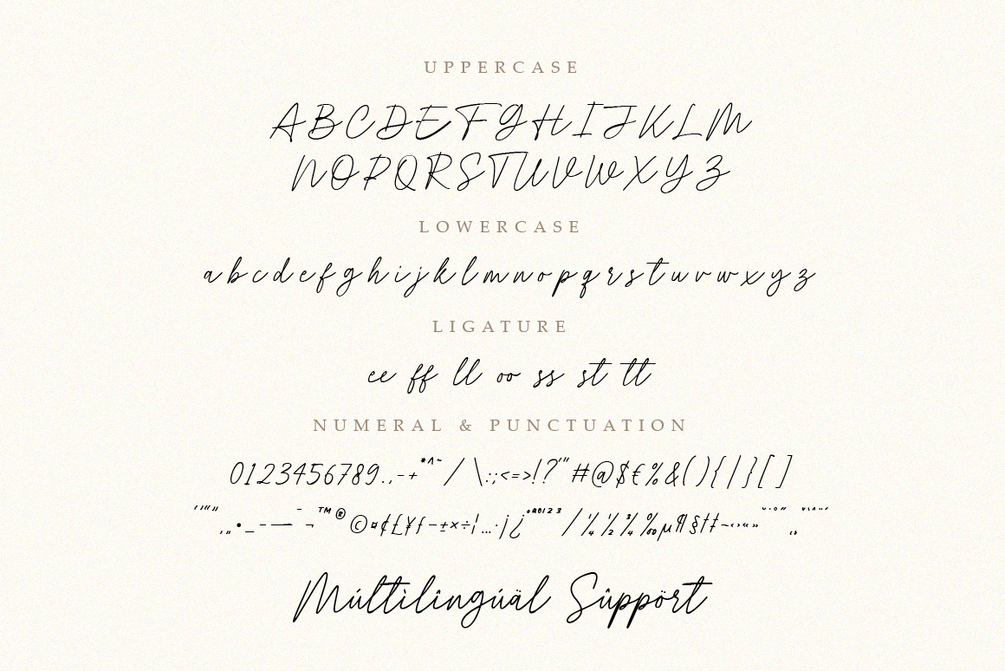 UPPERCASE
ABCDEFGHIJKLM
NOPQRSTUVWXYZ
LOWERCASE
abcdefghijklmnopqrstuvwxyz
LIGATURE
ee ff ll oo ss st tt
NUMERAL & PUNCTUATION
0123456789.,-+*^~/\:;<=>!?'"#@$€%&(){|}[]
‘’‚“”„•_–—¯¬™®©¤¢£¥ƒ-±×÷¦…·¡¿ªº⁰¹²³/¼½¾‰µ¶§†‡~‹›«»
Múltilîngúäl Sûppört